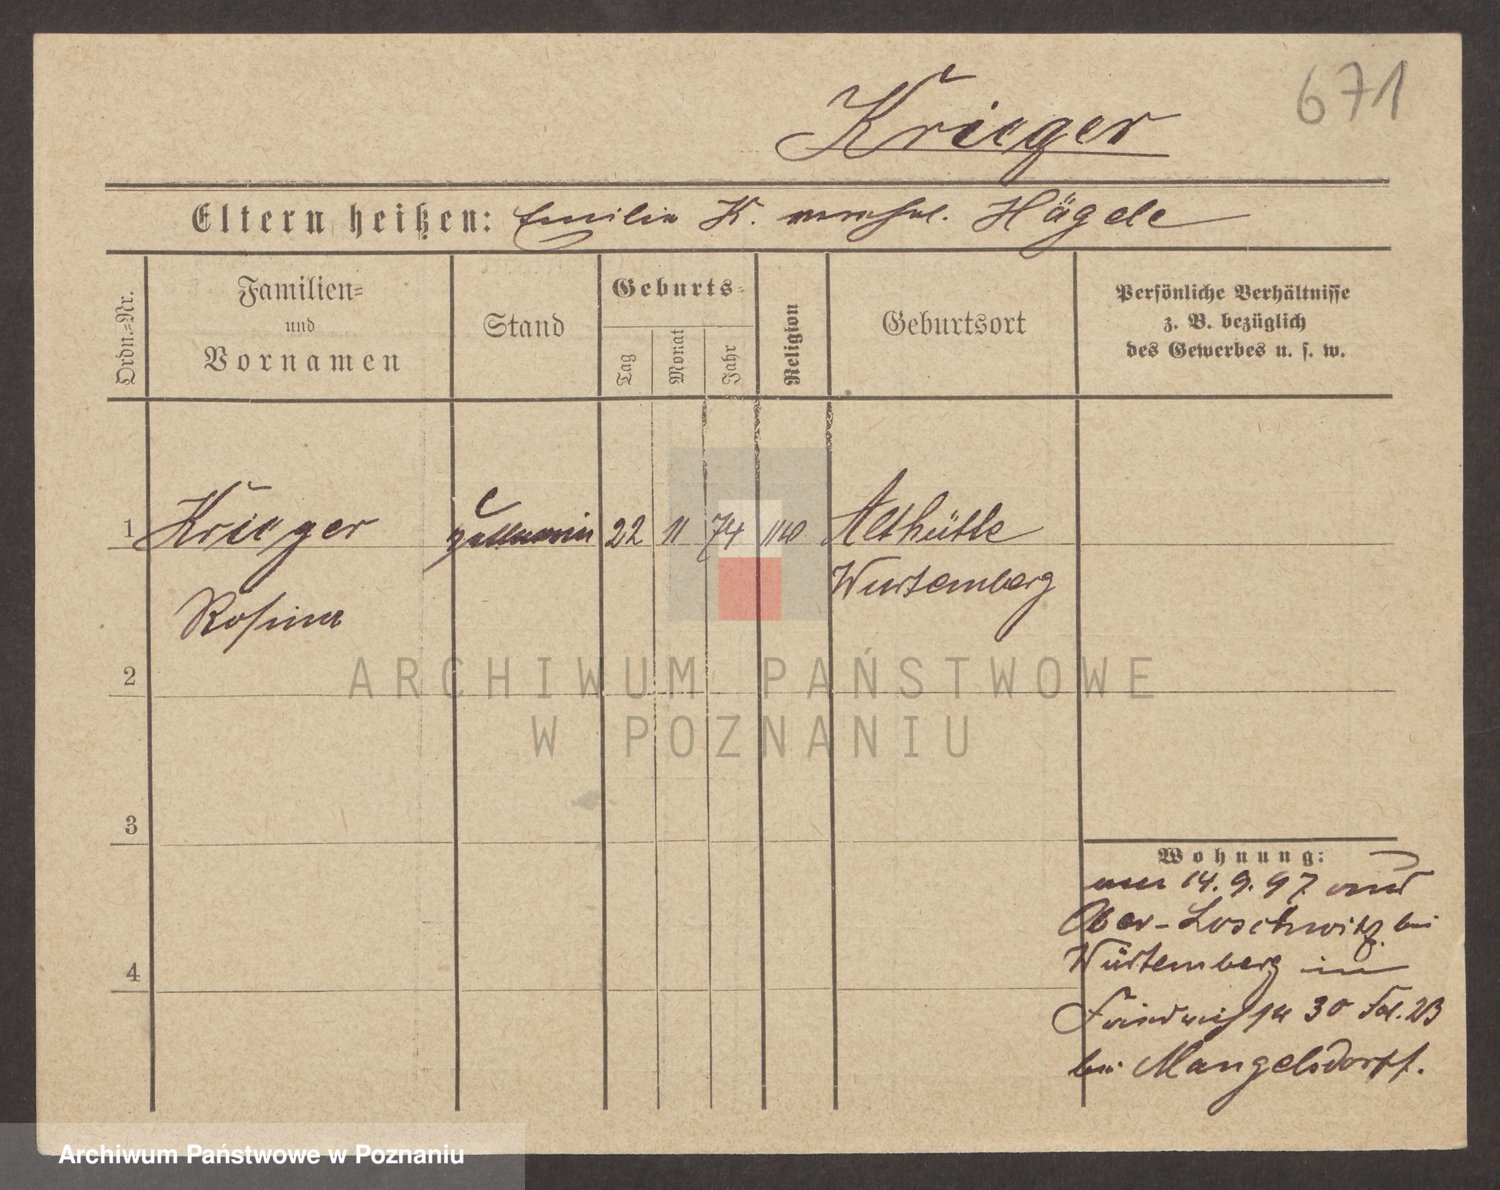 671
Krieger
Eltern heißen: Emilie K. verehel. Hägele
Ordn.-Nr.
Familien- und Vornamen
Stand
Geburts-
Tag
Monat
Jahr
Religion
Geburtsort
Persönliche Verhältnisse
z. B. bezüglich
des Gewerbes u. s. w.
1 Krieger 22 11 74 Althütte
Rosina Wurtemberg
2
3
4
Wohnung:
14. 9. 97
Ober-Loschwitz bei
Würtemberg in
30 2B
bei Mangelsdorff.
ARCHIWUM PAŃSTWOWE
W POZNANIU
Archiwum Państwowe w Poznaniu